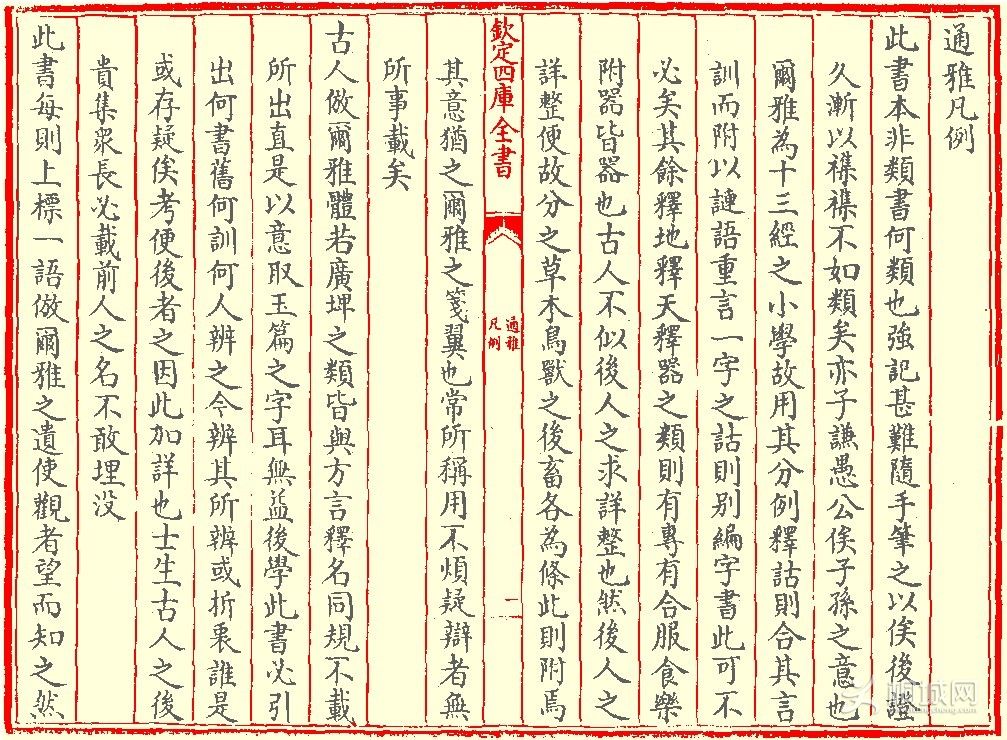 通雅凡例
此書本非類書何類也強記甚難隨手筆之以俟後證
久漸以襍襍不如類矣亦子謙愚公俟子孫之意也
爾雅為十三經之小學故用其分例釋詁則合其言
訓而附以謰語重言一字之詁則别編字書此可不
必矣其餘釋地釋天釋器之類則有專有合服食樂
附器皆器也古人不似後人之求詳整也然後人之
詳整便故分之草木鳥獸之後畜各為條此則附焉
欽定四庫全書
通雅
凡例
一
其意猶之爾雅之箋翼也常所稱用不煩疑辯者無
所事載矣
古人倣爾雅體若廣埤之類皆與方言釋名同規不載
所出直是以意取玉篇之字耳無益後學此書必引
出何書舊何訓何人辨之今辨其所辨或折衷誰是
或存疑俟考便後者之因此加詳也士生古人之後
貴集衆長必載前人之名不敢埋没
此書每則上標一語倣爾雅之遺使觀者望而知之然